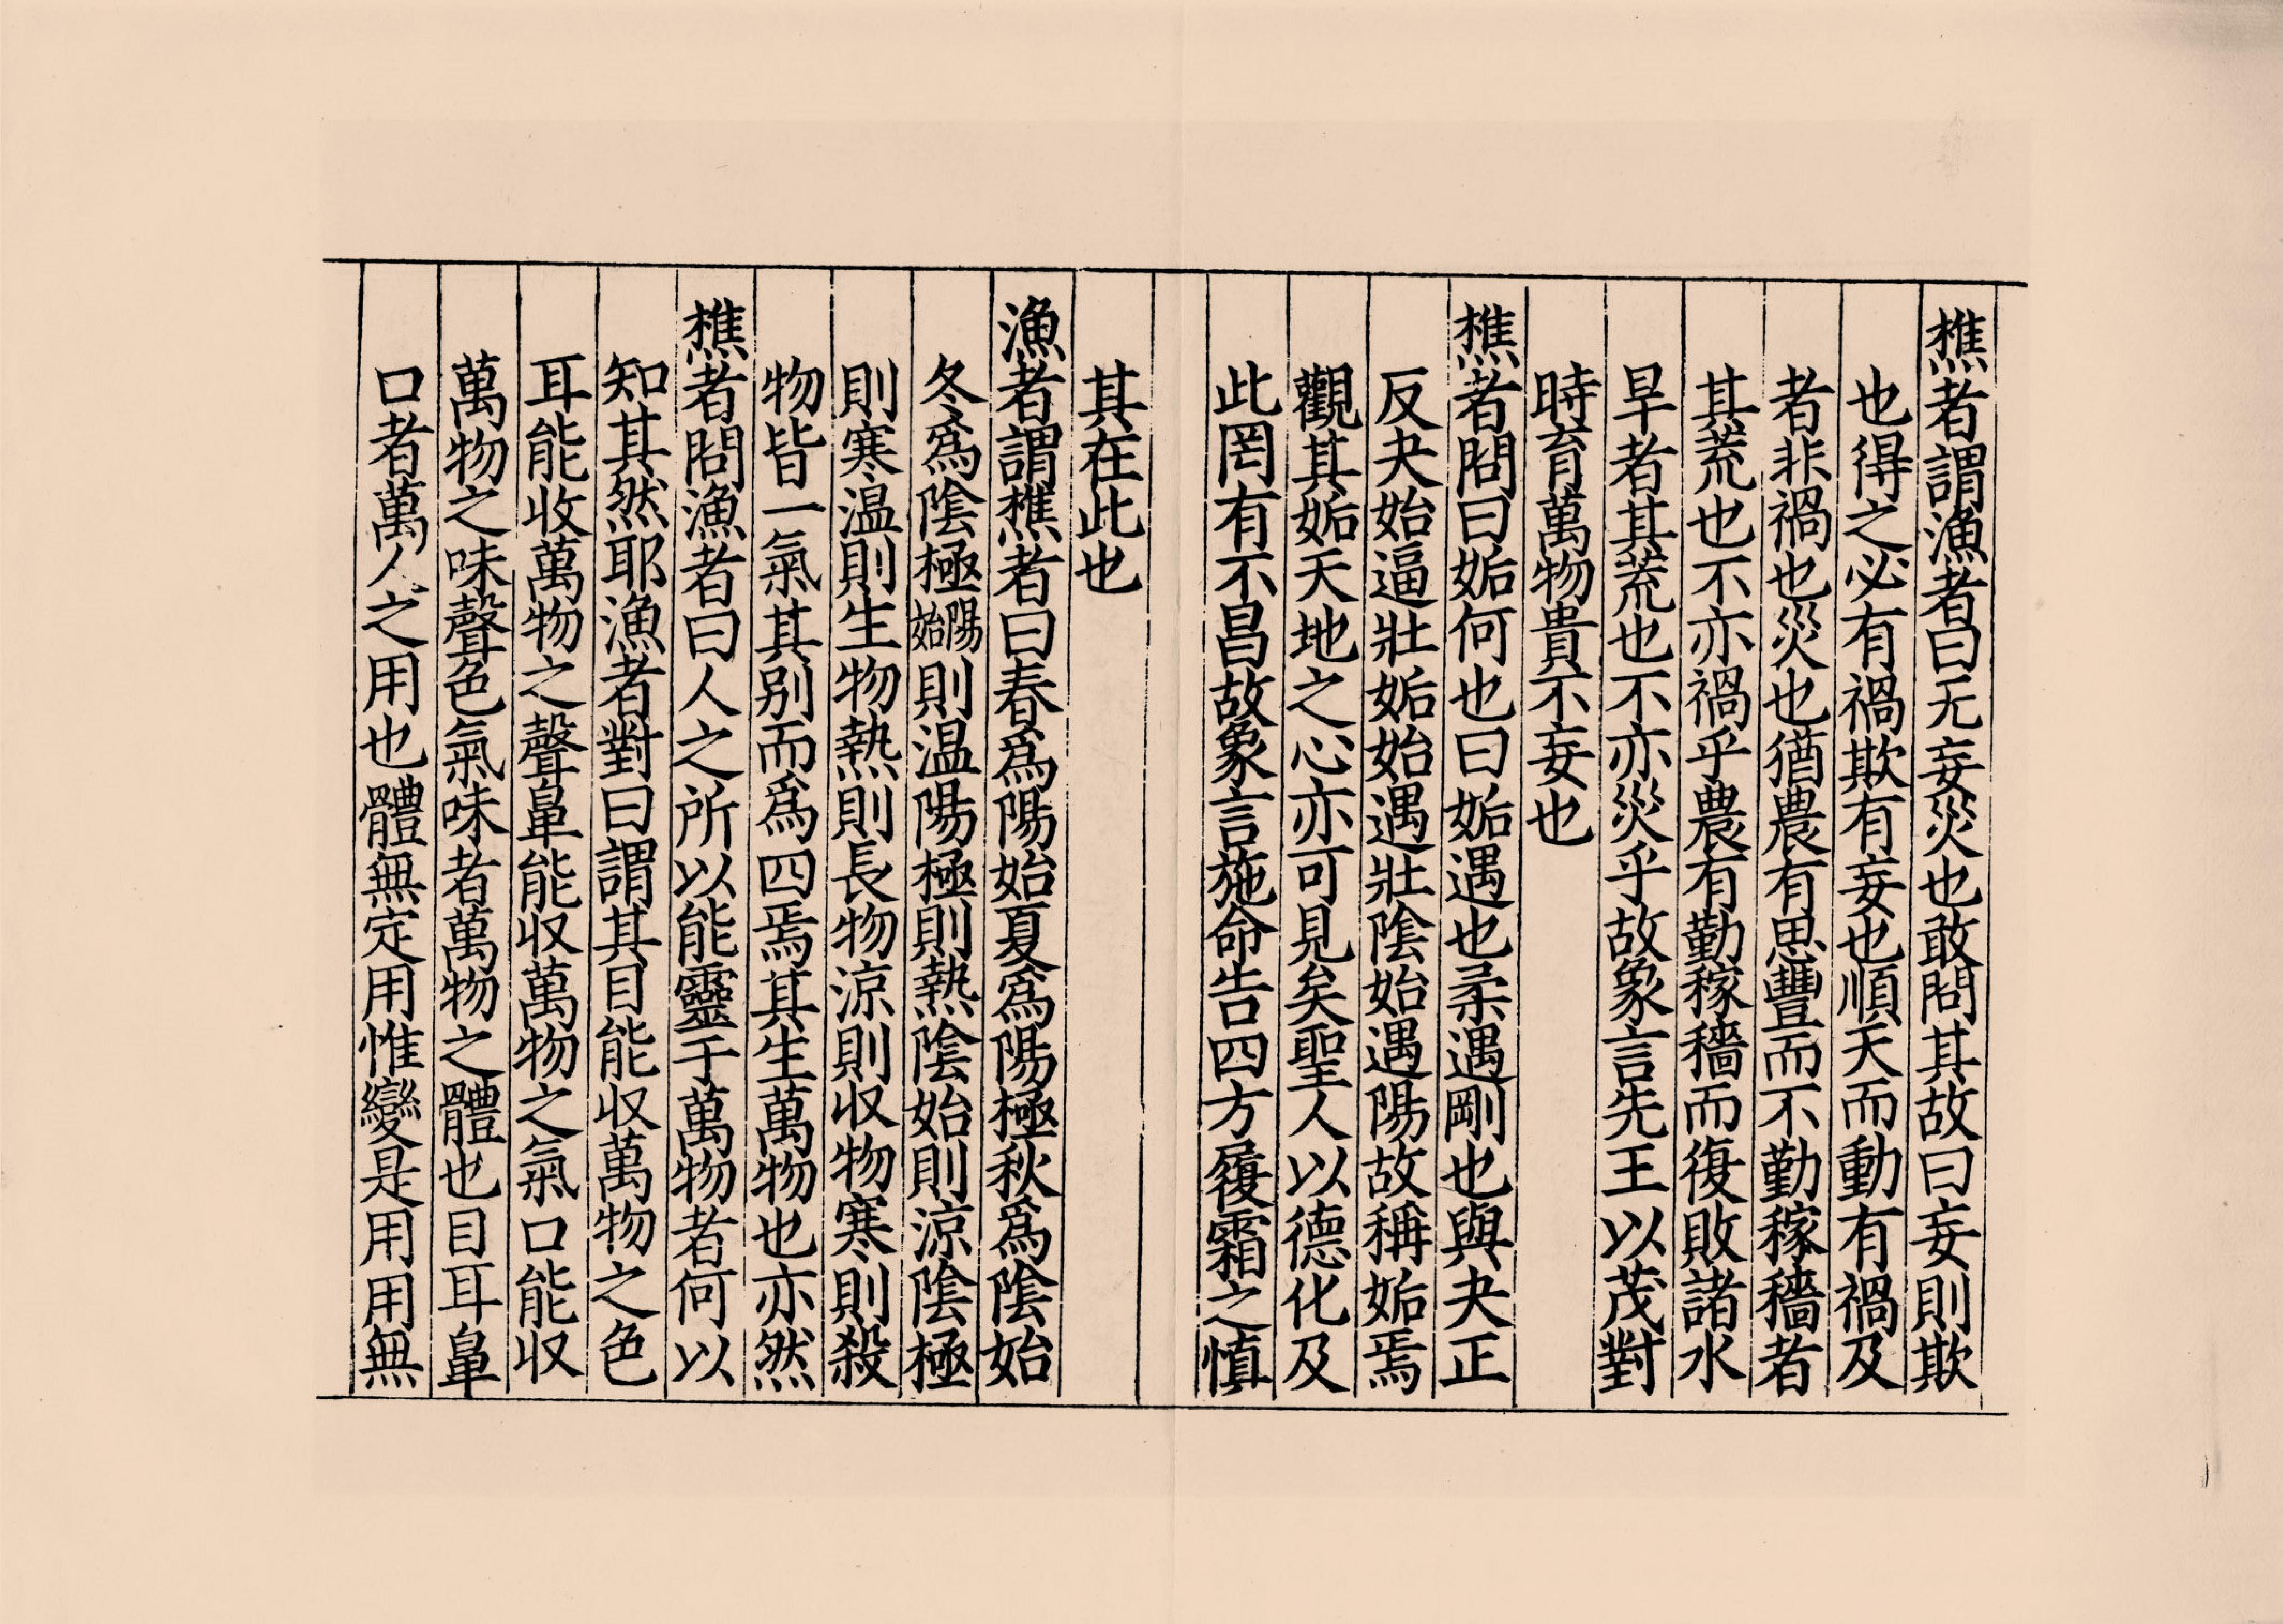 樵者謂漁者曰无妄災也敢問其故曰妄則欺
也得之必有禍欺有妄也順天而動有禍及
者非禍也災也猶農有思豐而不勤稼穡者
其荒也不亦禍乎農有勤稼穡而復敗諸水
旱者其荒也不亦災乎故象言先王以茂對
時育萬物貴不妄也
樵者問曰姤何也曰姤遇也柔遇剛也與夬正
反夬始逼壯姤始遇壯陰始遇陽故稱姤焉
觀其姤天地之心亦可見矣聖人以德化及
此罔有不昌故象言施命告四方履霜之慎
其在此也
漁者謂樵者曰春爲陽始夏爲陽極秋爲陰始
冬爲陰極陽始則温陽極則熱陰始則涼陰極
則寒温則生物熱則長物涼則収物寒則殺
物皆一氣其別而爲四焉其生萬物也亦然
樵者問漁者曰人之所以能靈于萬物者何以
知其然耶漁者對曰謂其目能収萬物之色
耳能收萬物之聲鼻能収萬物之氣口能収
萬物之味聲色氣味者萬物之體也目耳鼻
口者萬人之用也體無定用惟變是用用無